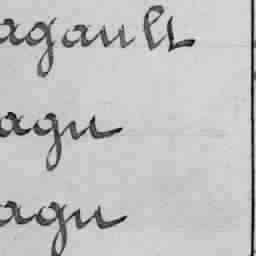 agault
agu
agu